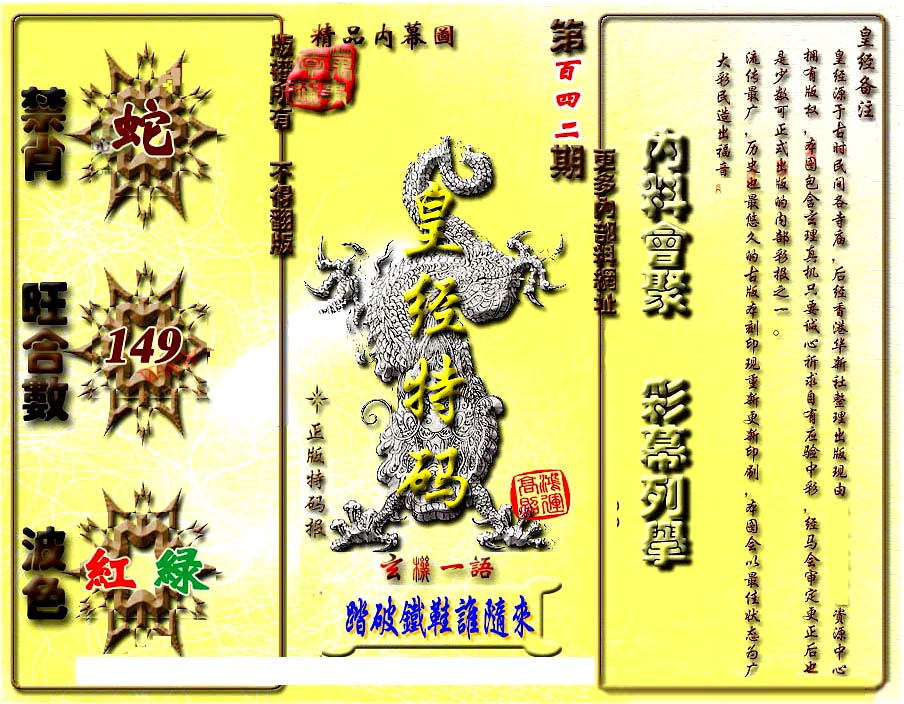 禁肖
蛇
旺合數
149
波色
紅 綠
版權所有 不得翻版
精品內幕圖
第百四二期
皇经特码
正版特码报
鴻運高照
玄機一語
踏破鐵鞋誰隨來
更多內部料網址
內料會聚 彩幕列舉
皇经备注
皇经源于古时民间各寺庙，后经香港华新社整理出版现由 资源中心
拥有版权，本图包含玄理真机只要诚心祈求自有应验中彩，经马会审定更正后也
是少数可正式出版的内部彩报之一。
流传最广，历史也最悠久的古版本刻印现重新更新印刷，本图会以最佳状态为广
大彩民造出福音。